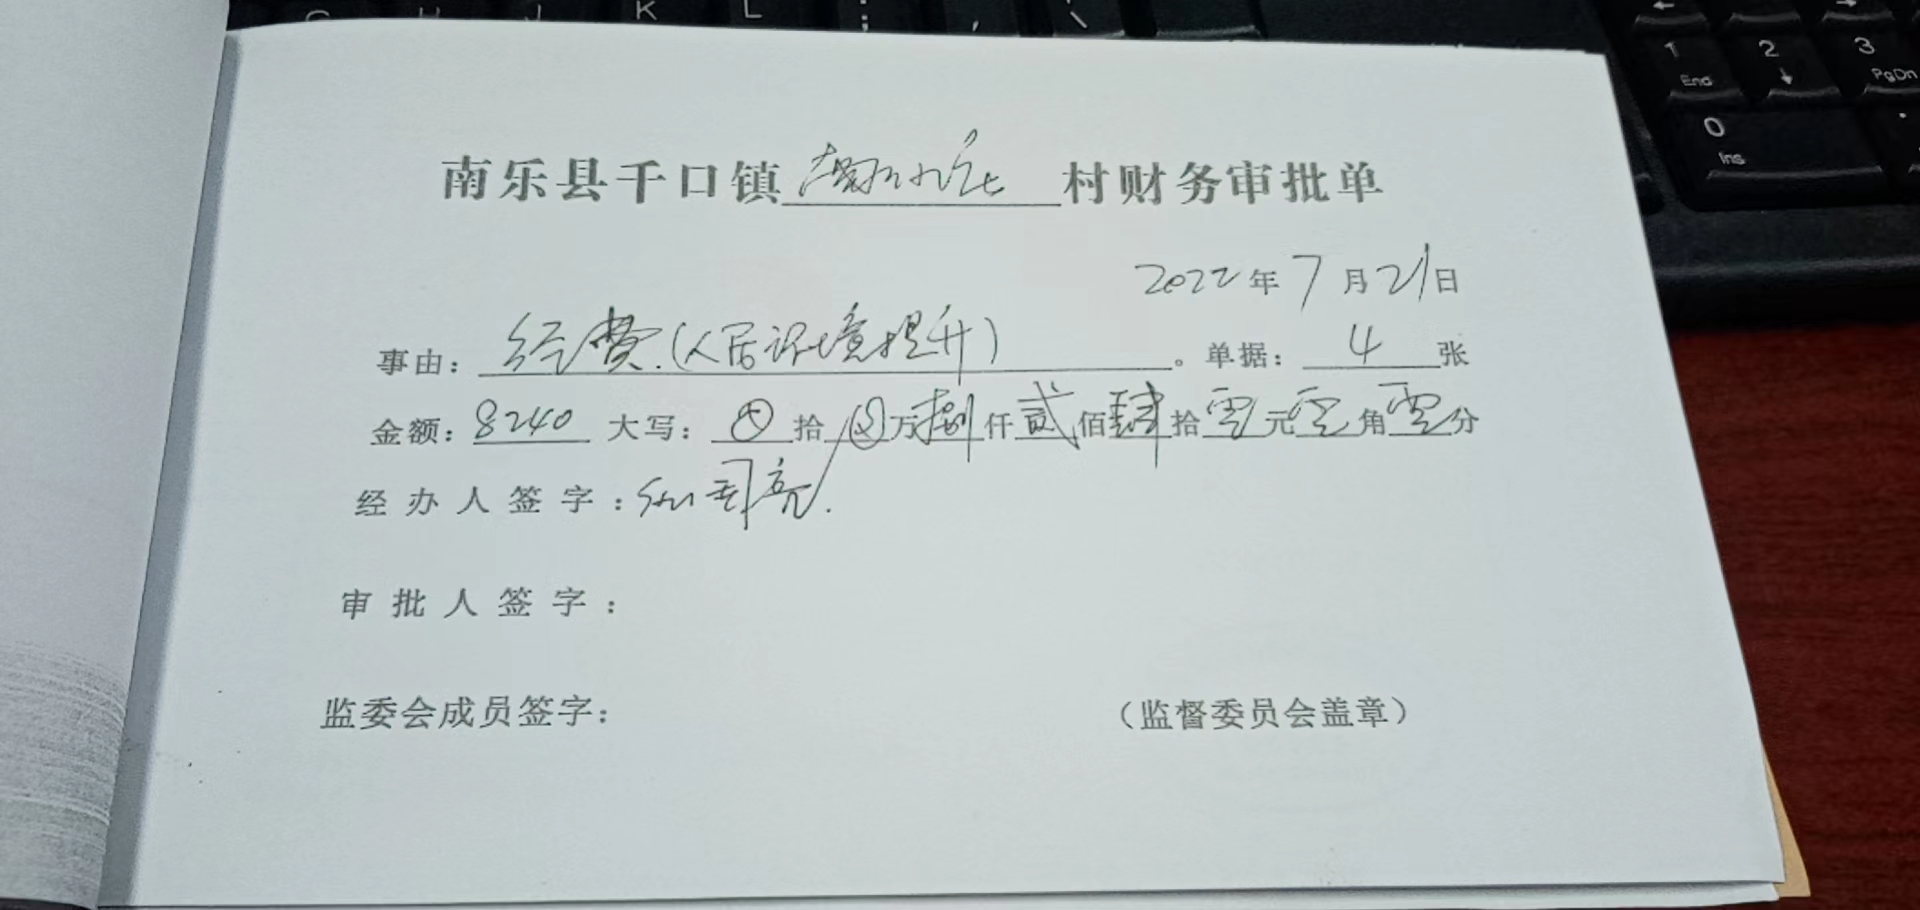 G H J K L ; , \
1 End 2 3 PgDn
0 Ins .
南乐县千口镇 村财务审批单
2022年7月21日
事由：经费.(人居环境提升)。单据：4张
金额：8240 大写：⊗拾⊗万捌仟贰佰肆拾零元零角零分
经办人签字：
审批人签字：
监委会成员签字：
（监督委员会盖章）